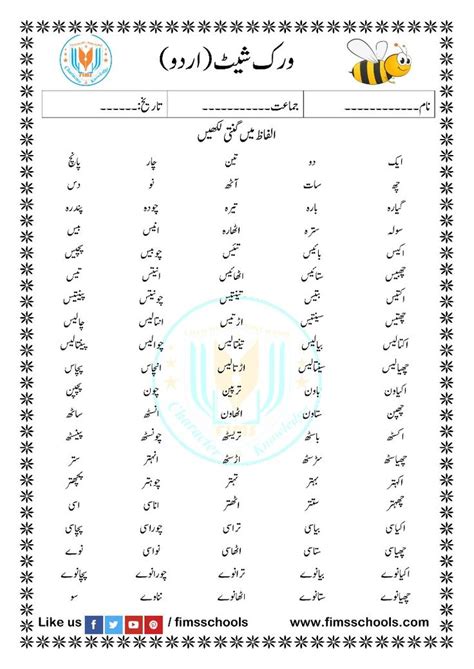 ورک شیٹ (اردو)
نام:------------ جماعت------------ تاریخ:------
الفاظ میں گنتی لکھیں
ایک دو تین چار پانچ
چھ سات آٹھ نو دس
گیارہ بارہ تیرہ چودہ پندرہ
سولہ سترہ اٹھارہ انیس بیس
اکیس بائیس تئیس چوبیس پچیس
چھبیس ستائیس اٹھائیس انتیس تیس
اکتیس بتیس تینتیس چونتیس پینتیس
چھتیس سینتیس اڑتیس انتالیس چالیس
اکتالیس بیالیس تینتالیس چوالیس پینتالیس
چھیالیس سینتالیس اڑتالیس انچاس پچاس
اکیاون باون ترپین چون پچپن
چھپن ستاون اٹھاون انسٹھ ساٹھ
اکسٹھ باسٹھ تریسٹھ چونسٹھ پینسٹھ
چھیاسٹھ سڑسٹھ اڑسٹھ انہتر ستر
اکہتر بہتر تہتر چوہتر پچھتر
چھہتر ستتر اٹھتر اناسی اسی
اکیاسی بیاسی تراسی چوراسی پچاسی
چھیاسی ستاسی اٹھاسی نواسی نوے
اکیانوے بیانوے ترانوے چورانوے پچانوے
چھیانوے ستانوے اٹھانوے ننانوے سو
Like us / fimsschools www.fimsschools.com